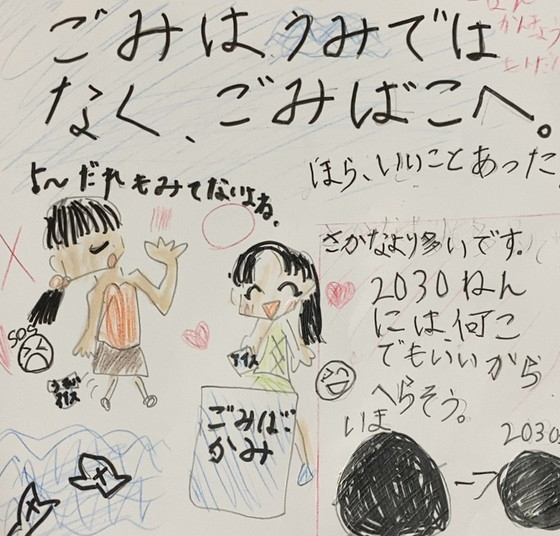 ごみは、うみでは
なく、ごみばこへ。
よ〜だれもみてないよね、
ほら、いいことあった
SOS
アイス
ごみばこ
かみ
さかなより多いです。
2030ねん
には、何こ
でもいいから
へらそう。
いま
2030